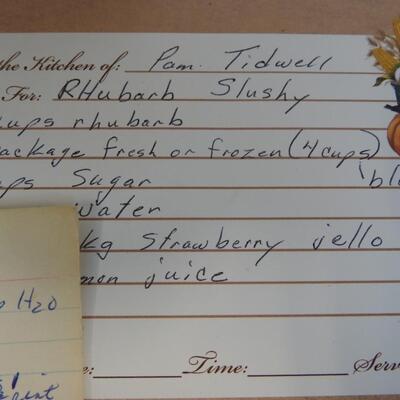 the Kitchen of: Pam Tidwell
For: RHubarb Slushy
cups rhubarb
package fresh or frozen (4 cups)
Sugar
water
kg strawberry jello
juice
H2O
Time: Serv